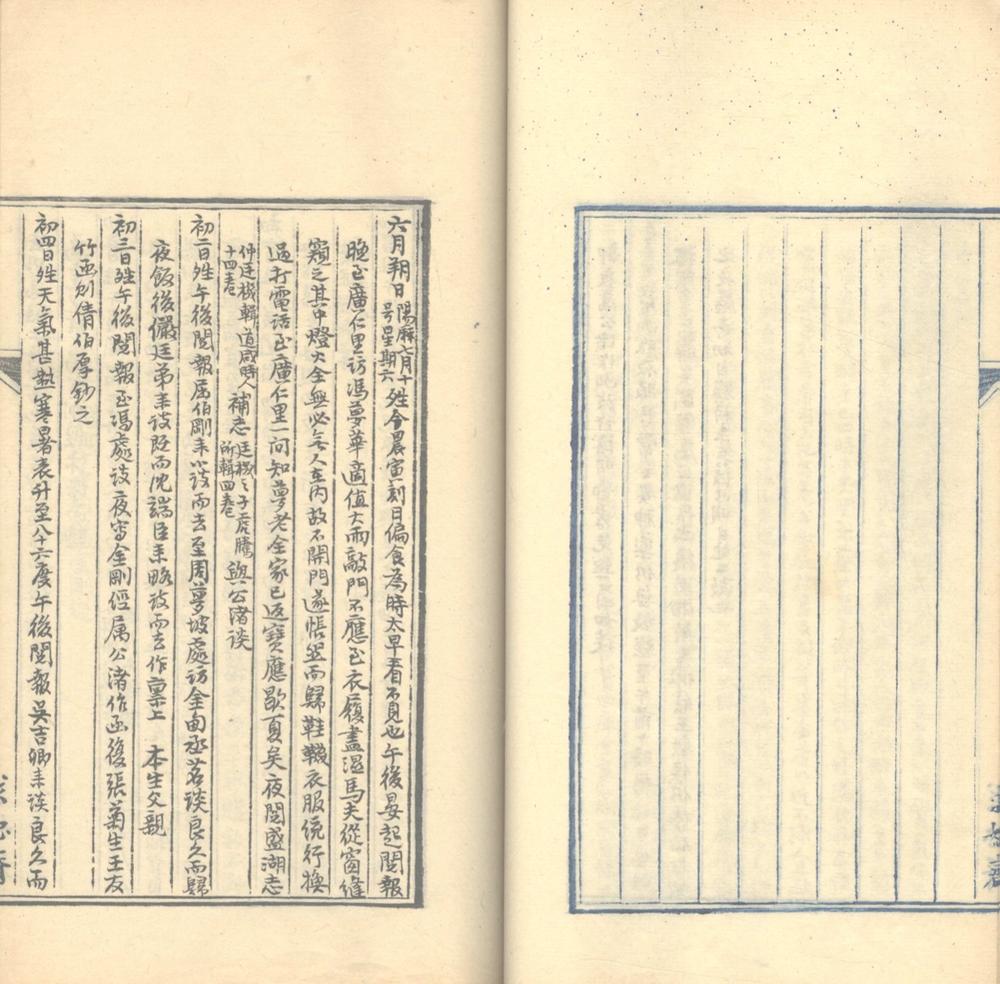 六月朔日陽厤七月十号星期六姓今晨寅刻日偏食為時太早看不見也午後晏起閱報
晚至廣仁里訪馮夢華適值大雨敲門不應至衣履盡濕馬夫從窗縫
窺之其中燈火全無必無人在內故不開門遂悵然而歸鞋襪衣服統行換
過打電話至廣仁里一问知夢老全家已返寶應歇夏矣夜閱盛湖志
仲廷機輯道咸時人十四卷補志廷機之子虎騰所輯四卷與公渚谈
初二日姓午後閱報屈伯剛来小谈而去至周夢坡處訪金甸丞茗谈良久而歸
夜飯後儼廷弟来谈既而沈端臣来略谈而去作稟上 本生父親
初三日姓午後閱報至馮處谈夜寫金剛經属公渚作函復張菊生王友
竹函则倩伯厚鈔之
初四日姓天氣甚熱寒暑表升至八十六度午後閱報吴吉卿来谈良久而